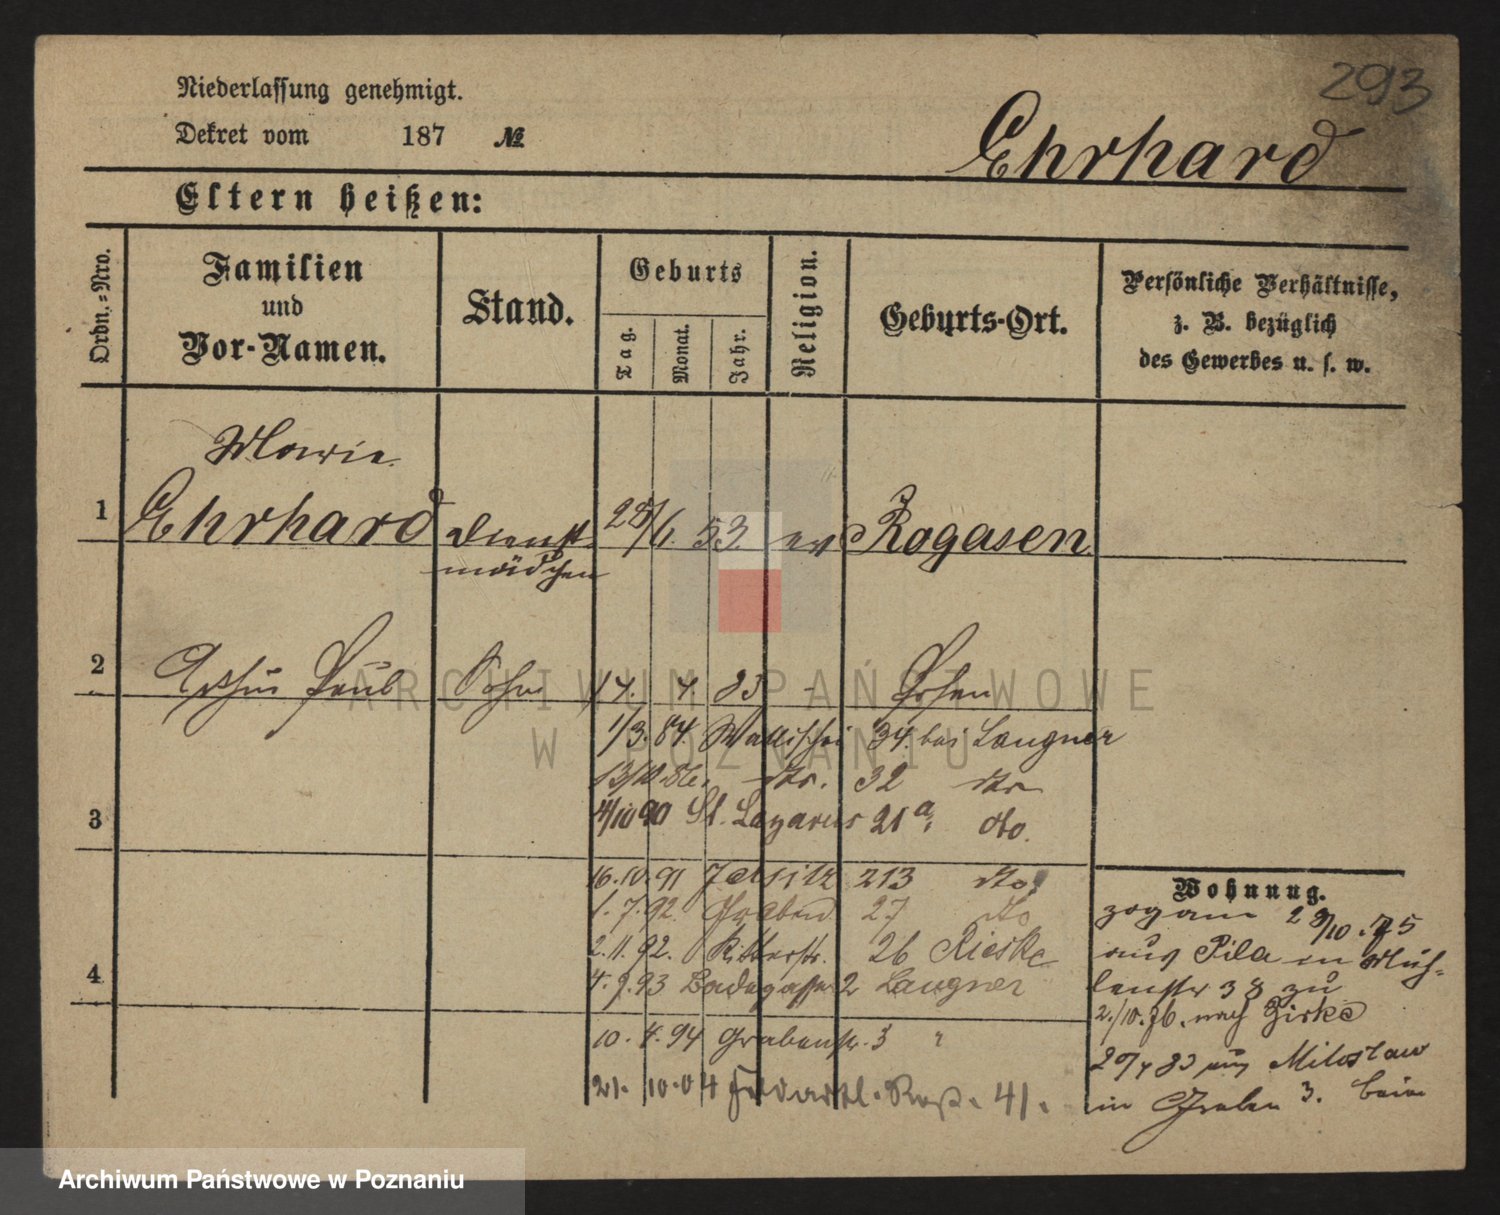 293
Niederlassung genehmigt.
Dekret vom 187 №
Ehrhard
Eltern heißen:
Ordn.-Nro.
Familien
und
Vor-Namen.
Stand.
Geburts
Tag.
Monat.
Jahr.
Religion.
Geburts-Ort.
Persönliche Verhältnisse,
z. B. bezüglich
des Gewerbes u. s. w.
Marie
1 Ehrhard Dienst- 28/6. 53. ev Rogasen
mädchen
2 Arthur Paul Sohn 14. 4 83 - Posen
1/3. 84. Wallischei 34. bei Langner
32 dto
3
4/10 90 St. Lazarus 21a, dto.
16.10.91 Jersitz 213 dto.
Wohnung.
1. 7. 92. Graben 27 dto
zogam 28/10. 75
2. 11. 92. Ritterstr. 26 Rieske
aus Pila in Müh-
4
4. 9. 93 Badegasse 2 Langner
lenstr 38 zu
2./10. 76. nach Zirke
10. 4. 94 Grabenstr. 3 "
83 aus Miloslaw
21. 10. 04 Feldartl. Reg. 41.
in Graben 3. beim
ARCHIWUM PAŃSTWOWE
W POZNANIU
Archiwum Państwowe w Poznaniu